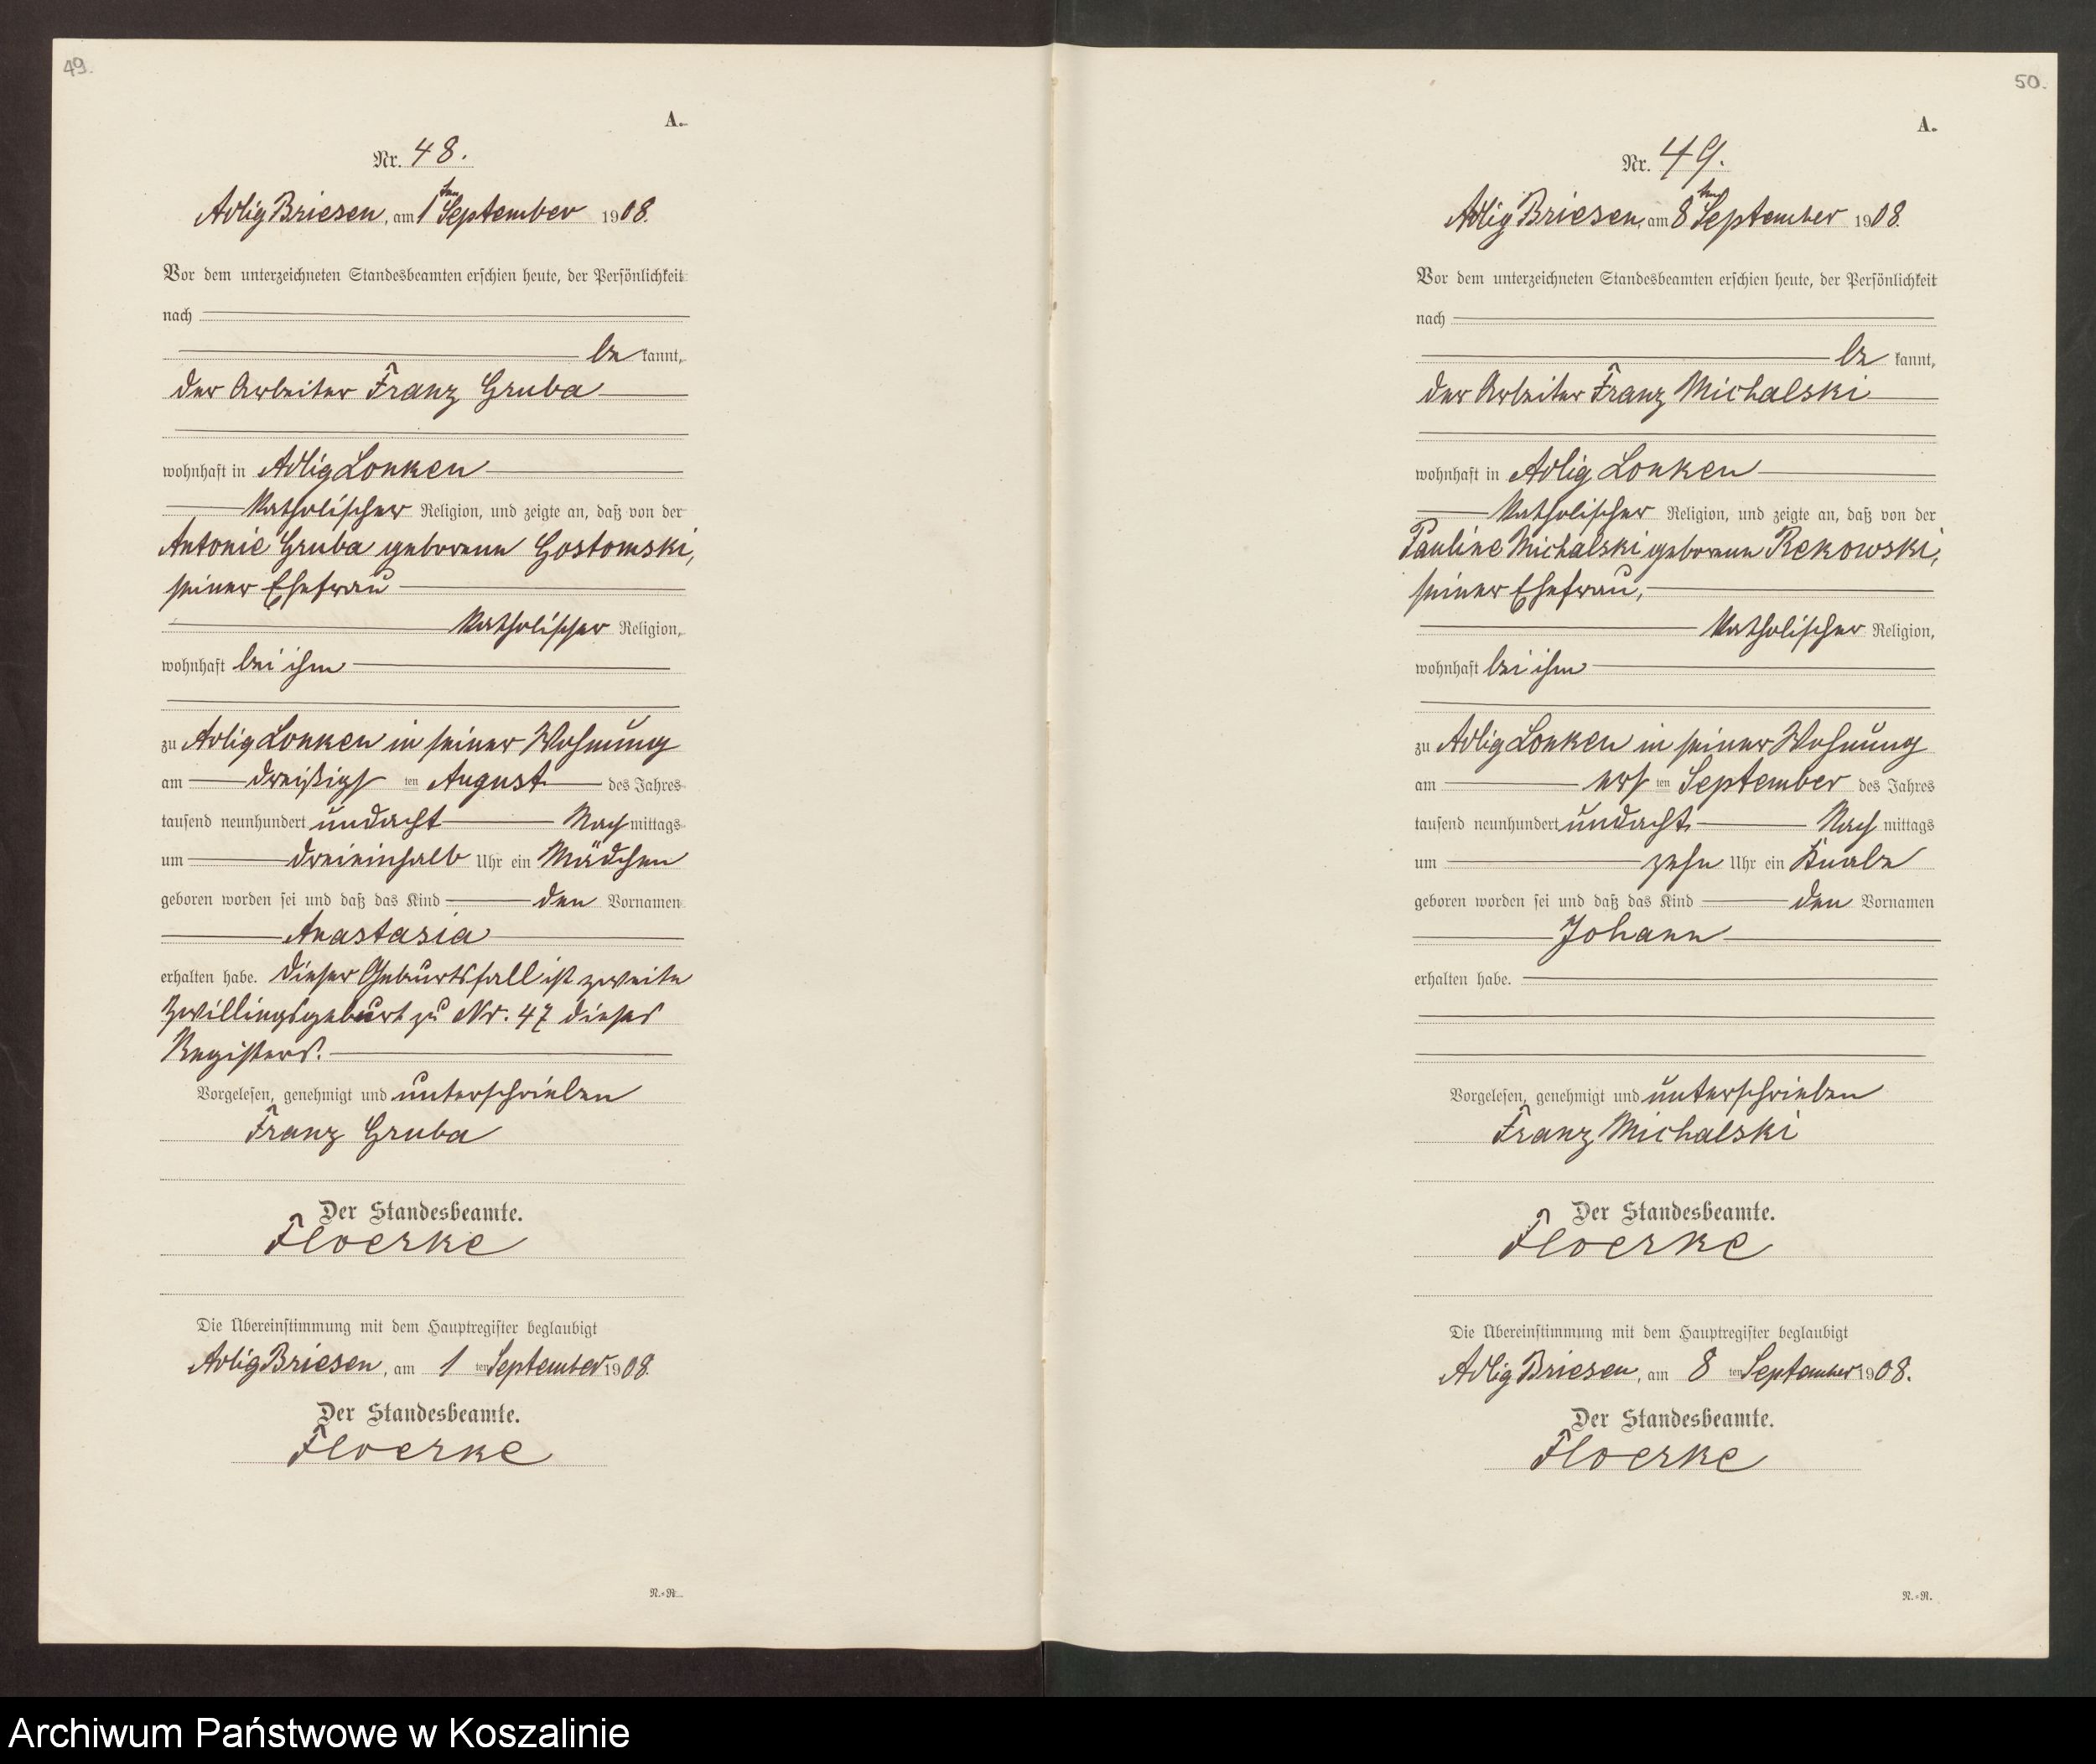 49.
A.
Nr. 48.
Adlig Briesen, am 1ten September 1908.
Vor dem unterzeichneten Standesbeamten erschien heute, der Persönlichkeit
nach
bekannt,
der Arbeiter Franz Gruba
wohnhaft in Adlig Lonken
katholischer Religion, und zeigte an, daß von der
Antonie Gruba geborenen Gostomski,
seiner Ehefrau
katholischer Religion,
wohnhaft bei ihm
zu Adlig Lonken in seiner Wohnung
am dreißigsten August des Jahres
tausend neunhundert undacht Nachmittags
um dreieinhalb Uhr ein Mädchen
geboren worden sei und daß das Kind den Vornamen
Anastasia
erhalten habe. Dieser Geburtsfall ist zweite
Zwillingsgeburt zu Nr. 47 dieses
Registers.
Vorgelesen, genehmigt und unterschrieben
Franz Gruba
Der Standesbeamte.
Floerke
Die Übereinstimmung mit dem Hauptregister beglaubigt
Adlig Briesen, am 1 ten September 1908.
Der Standesbeamte.
Floerke
N.=R.
50.
A.
Nr. 49.
Adlig Briesen, am 8ten September 1908.
Vor dem unterzeichneten Standesbeamten erschien heute, der Persönlichkeit
nach
bekannt,
der Arbeiter Franz Michalski
wohnhaft in Adlig Lonken
katholischer Religion, und zeigte an, daß von der
Pauline Michalski geborenen Rekowski,
seiner Ehefrau,
katholischer Religion,
wohnhaft bei ihm
zu Adlig Lonken in seiner Wohnung
am ersten September des Jahres
tausend neunhundert undacht Nachmittags
um zehn Uhr ein Knabe
geboren worden sei und daß das Kind den Vornamen
Johann
erhalten habe.
Vorgelesen, genehmigt und unterschrieben
Franz Michalski
Der Standesbeamte.
Floerke
Die Übereinstimmung mit dem Hauptregister beglaubigt
Adlig Briesen, am 8 ten September 1908.
Der Standesbeamte.
Floerke
N.=R.
Archiwum Państwowe w Koszalinie